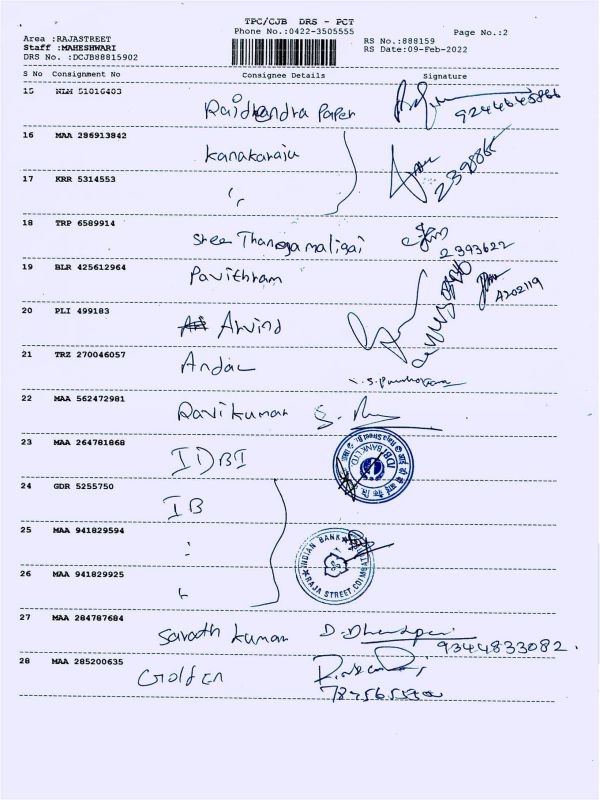 TPC/CJB DRS - PCT
Phone No.:0422-3505555
Page No.:2
Area :RAJASTREET
Staff :MAHESHWARI
DRS No. :DCJB88815902
RS No.:888159
RS Date:09-Feb-2022
S No Consignment No Consignee Details Signature
15 NLM 51016403 Rajdhendra Paper 9244645866
16 MAA 286913842 Kanakaraju 239886
17 KRR 5314553 "
18 TRP 6589914 Shree Thangamaligai 2393622
19 BLR 425612964 Pavithram A202119
20 PLI 499183 Arvind
21 TRZ 270046057 Andal
22 MAA 562472981 Ravikumar
23 MAA 264781868 IDBI
IDBI BANK LTD.
24 GDR 5255750 IB
25 MAA 941829594 "
INDIAN BANK
RAJA STREET, COIMBATORE
26 MAA 941829925 "
27 MAA 284787684 Sarath Kumar 9344833082.
28 MAA 285200635 Golden